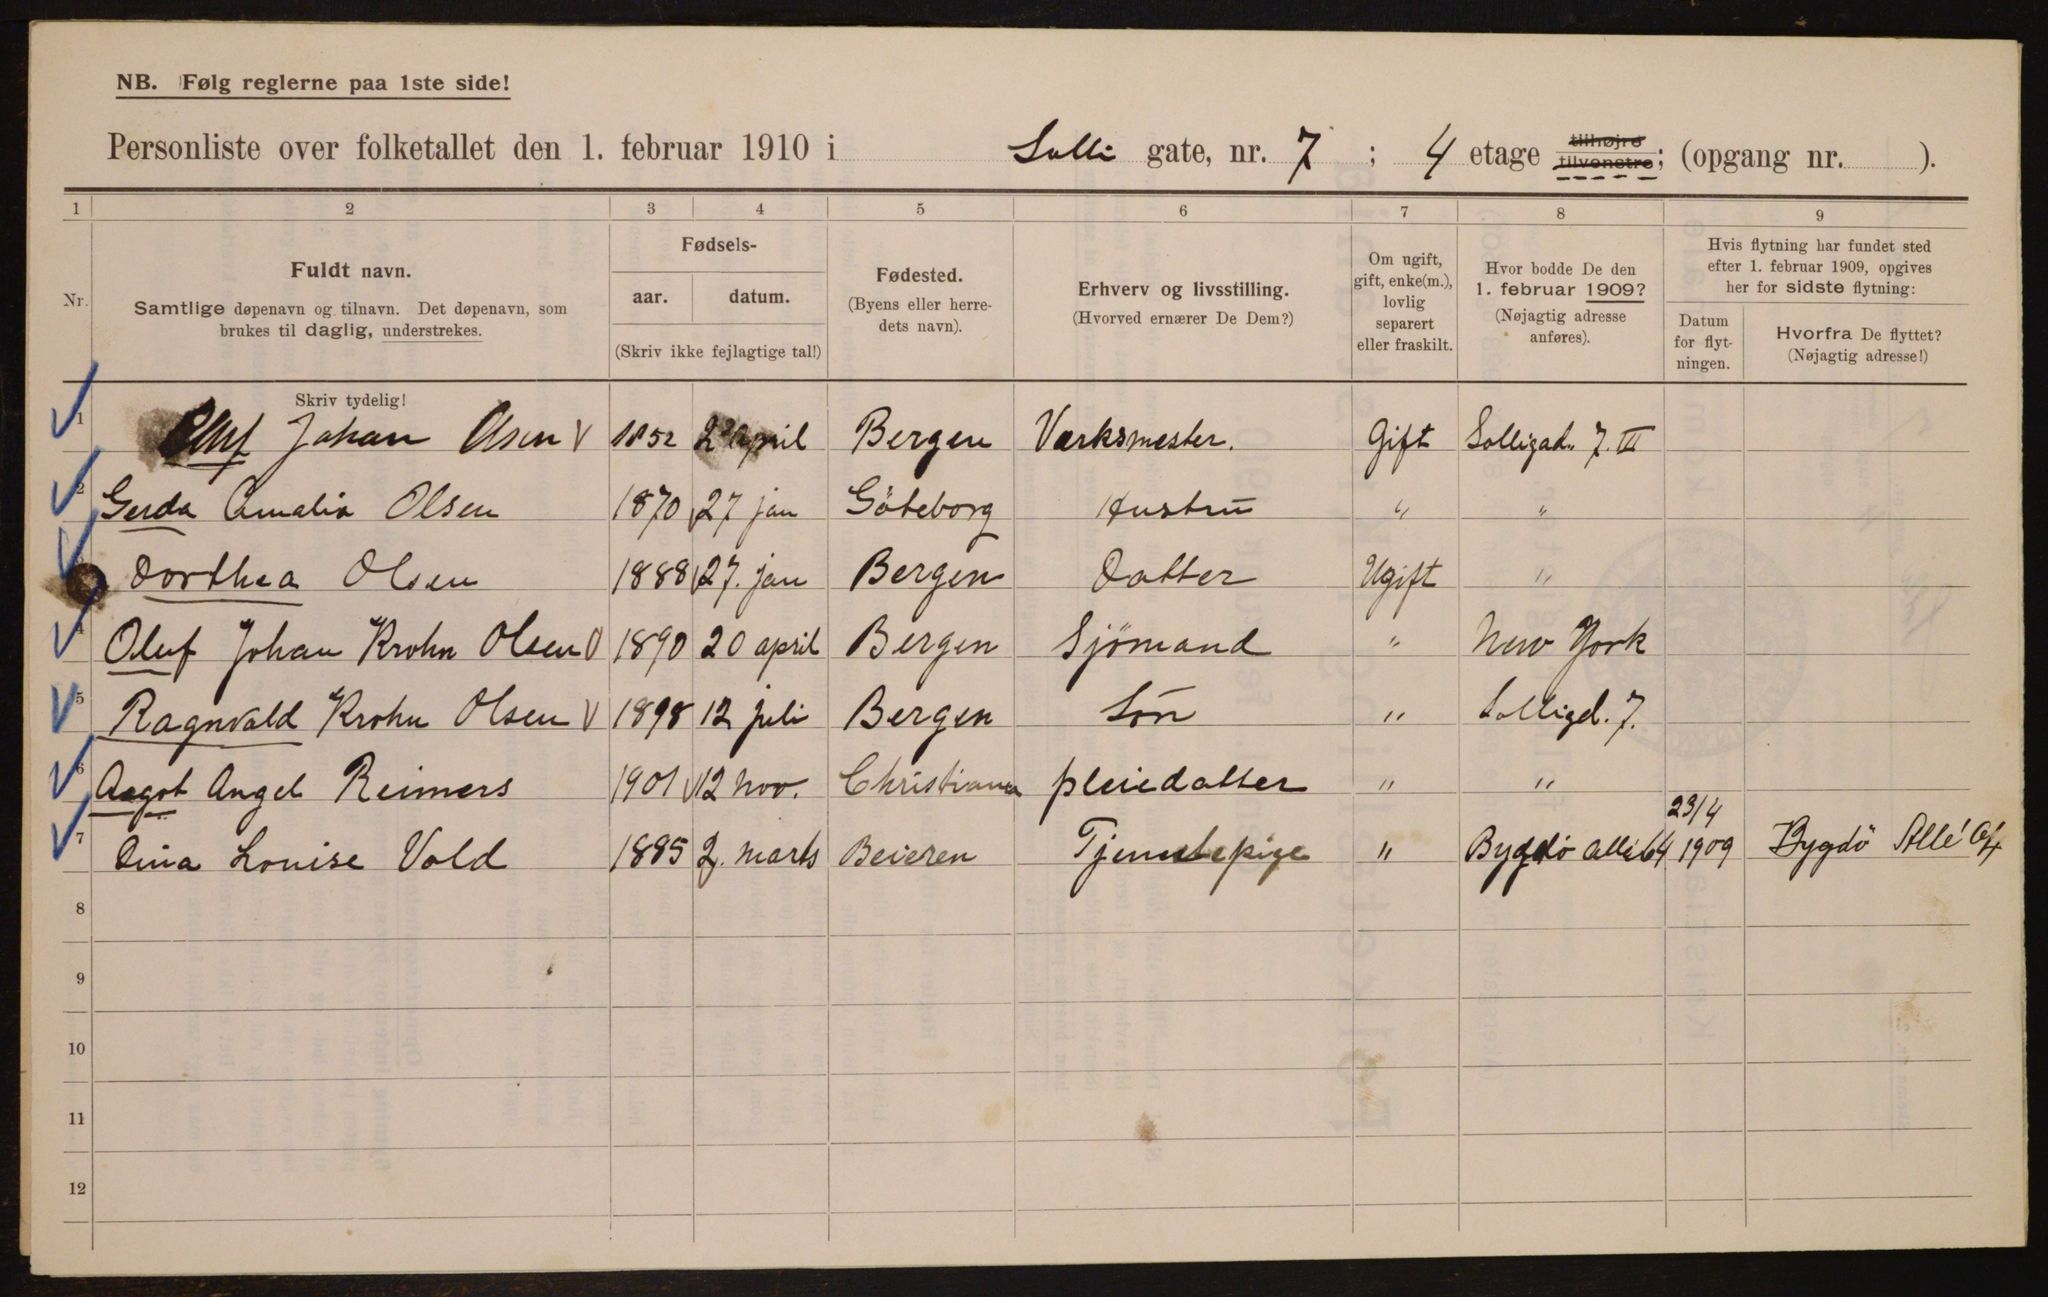 NB. Følg reglerne paa 1ste side!
Personliste over folketallet den 1. februar 1910 i Solli gate, nr. 7 ; 4 etage tilhøjre tilvenstre; (opgang nr. ).
1 2 3 4 5 6 7 8 9
Nr.
Fuldt navn.
Samtlige døpenavn og tilnavn. Det døpenavn, som
brukes til daglig, understrekes.
Fødsels-
aar. datum.
(Skriv ikke fejlagtige tal!)
Fødested.
(Byens eller herre-
dets navn).
Erhverv og livsstilling.
(Hvorved ernærer De Dem?)
Om ugift,
gift, enke(m.),
lovlig
separert
eller fraskilt.
Hvor bodde De den
1. februar 1909?
(Nøjagtig adresse
anføres).
Hvis flytning har fundet sted
efter 1. februar 1909, opgives
her for sidste flytning:
Datum
for flyt-
ningen.
Hvorfra De flyttet?
(Nøjagtig adresse!)
Skriv tydelig!
1 Oluf Johan Olsen 1852 april Bergen Værksmester. Gift Solligad. 7. III
2 Gerda Amalia Olsen 1870 27 jan Göteborg Hustru " "
3 Dorthea Olsen 1888 27. jan Bergen Datter Ugift "
4 Oluf Johan Krohn Olsen 1890 20 april Bergen Sjömand " New York
5 Ragnvald Krohn Olsen 1898 12 juli Bergen Sön " Solligd. 7.
6 Aagot Angel Reimers 1901 12 nov. Christiania pleiedatter " "
7 Dina Louise Vold 1885 2. marts Beieren Tjenestepige " Bygdö alle 64 23/4 1909 Bygdö Allé 64
8
9
10
11
12